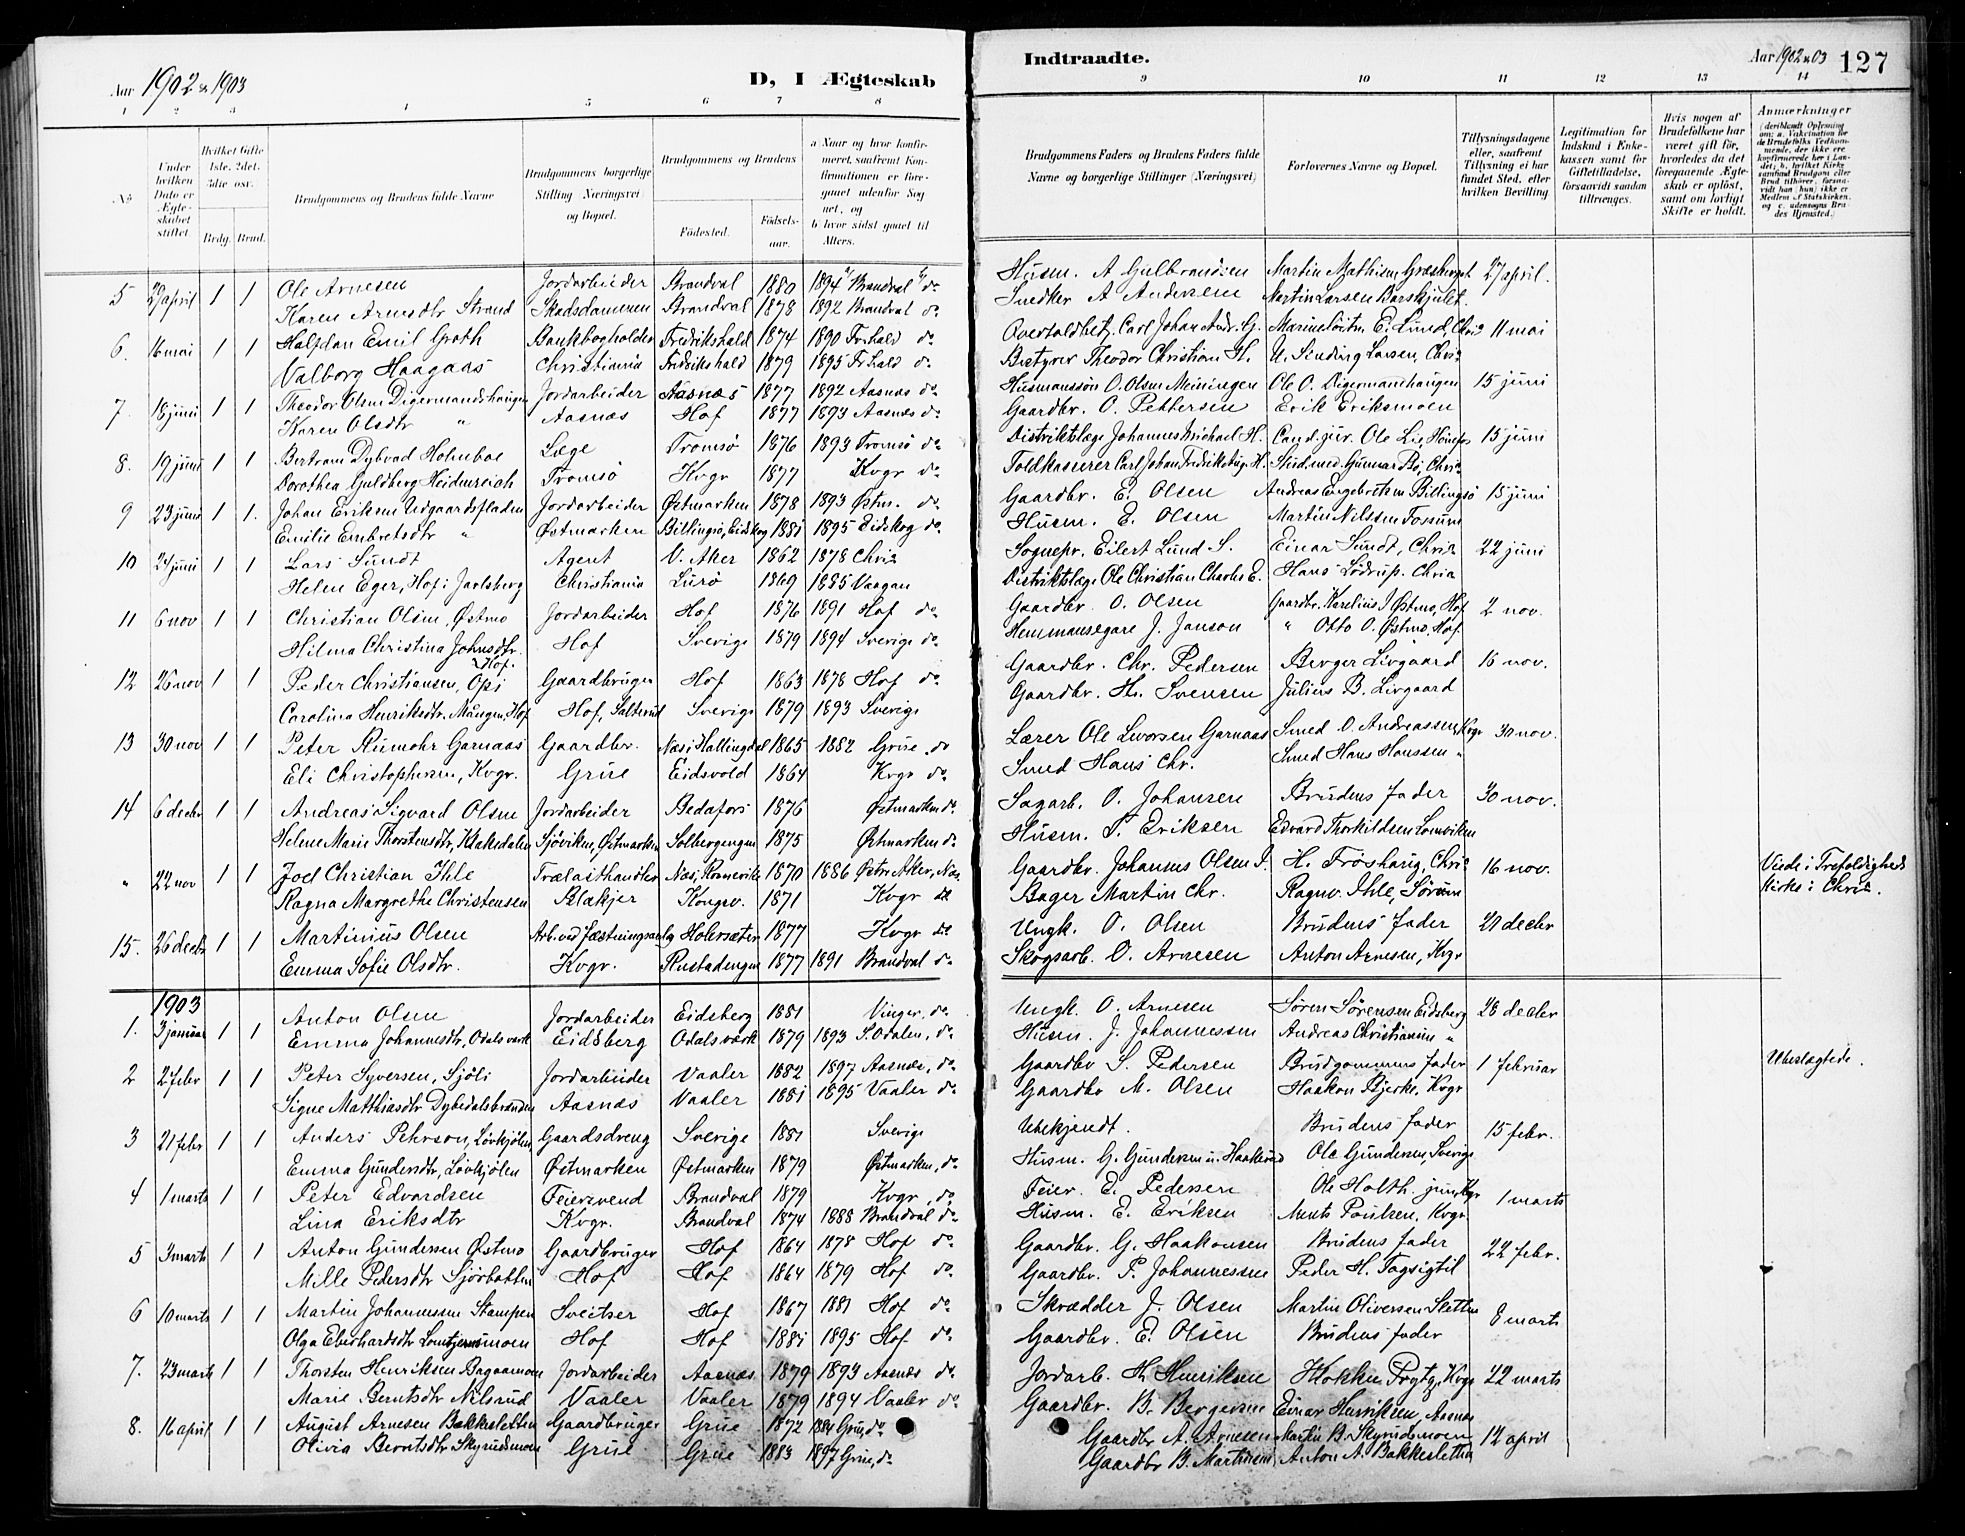 Aar 1902 & 1903
D, I Ægteskab
1 2 3 4 5 6 7 8
No
Under hvilken Dato er Ægteskabet stiftet
Hvilket Gifte 1ste. 2det. 3die osv.
Brdg. Brud.
Brudgommens og Brudens fulde Navne
Brudgommens borgerlige Stilling Næringsvei og Bopæl.
Brudgommens og Brudens
Fødested.
Fødsels-aar.
a Naar og hvor konfirmeret, saafremt Konfirmationen er foregaaet udenfor Sognet, og
b hvor sidst gaaet til Alters.
5 27 april 1 1 Ole Arnesen Jordarbeider Brandval 1880 1894 Brandval do
Karen Arnesdtr Strand Skadsdammen Brandval 1878 1892 Brandval do
6. 16 mai 1 1 Halfdan Emil Groth Bankbogholder Fredrikshald 1874 1890 Fr.hald do
Valborg Haagaas Christiania Fredrikshald 1879 1895 Fr.hald do
7. 18 juni 1 1 Theodor Olsen Digermandshaugen Jordarbeider Aasnæs 1877 1892 Aasnæs do
Karen Olsdtr " Aasnæs Hof 1877 1893 Aasnæs do
8. 19 juni 1 1 Bertram Dybvad Holmboe Læge Tromsø 1876 1893 Tromsø do
Dorothea Guldberg Heidenreich Tromsø Kvgr 1877 Kvgr do
9 23 juni 1 1. Johan Eriksen Udgaardspladen Jordarbeider Østmarken 1878 1893 Østm. do
Emilie Embretsdtr " Østmarken Billingsø, Eidskog 1881 1895 Eidskog do
10 24 juni 1 1 Lars Sundt Agent V. Aker 1862 1878 Chria
Helen Eger, Hof i Jarlsberg Christiania Lurø 1869 1885 Vaagan
11 6 nov 1 1 Christian Olsen, Østmo Jordarbeider Hof 1876 1891 Hof do
Hilma Christina Johnsdtr. Hof. Hof Sverige 1879 1894 Sverige do
12 26 nov 1 1 Peder Christiansen, Opi Gaardbruger Hof 1863 1878 Hof do
Carolina Henriksdtr. Mången, Hof Hof, Sætterud Sverige 1879 1893 Sverige
13 30 nov 1 1 Peter Rumohr Garnaas Gaardbr. Næs i Hallingdal 1865 1882 Grue do
Eli Christophersen, Kvgr. Grue Eidsvold 1864 Kvgr do
14 6 decbr 1 1 Andreas Sigvard Olsen Jordarbeider Bedafors 1876 Østmarken do
Helene Marie Thorstensdtr, Klakedalen Sjøviken, Østmarken Solbergengen 1875 Østmarken do
" 22 nov 1 1 Joel Christian Ihle Trælasthandler Næs, Romerike 1870 1886 Østre Aker, Næs
Ragna Margrethe Christensen Blakjer Kongsv. 1871 Kvgr do
15. 26 decbr 1 1 Martinius Olsen Arb. ved Fæstningsanlæg Holersæter 1877 Kvgr do
Emma Sofie Olsdtr. Kvgr. Rustadengen 1877 1891 Brandval do
1903
1. 3 januar 1 1 Anton Olsen Jordarbeider Eidsberg 1881 Vinger, do
Emma Johannesdtr, Odals værk Eidsberg Odals værk 1879 1893 S. Odalen, do
2 2 febr 1 1 Peter Syversen, Sjøli Jordarbeider Vaaler 1882 1897 Aasnæs, do
Signe Matthiasdtr Dybedalsbranden Aasnæs Vaaler 1881 1895 Vaaler do
3 21 febr 1 1 Anders Pehrson, Løvhjølen Gaardsdreng Sverige 1881 Sverige
Emma Gundersdtr, Løvhjølen Østmarken Østmarken 1879 Østmarken, do
4 1 marts 1 1 Peter Edvardsen Feiersvend Brandval 1879 Kvgr, do
Lina Eriksdtr Kvgr. Brandval 1874 1888 Brandval do
5 3 marts 1 1 Anton Gundersen Østmo Gaardbruger Hof 1864 1878 Hof do
Mille Pedersdtr Sjørbotten Hof Hof 1864 1879 Hof do
6 10 marts 1 1 Martin Johannessen Stampen Sveitser Hof 1867 1881 Hof do
Olga Eberhardsdtr Lomtjernsmoen Hof Hof 1881 1895 Hof do
7. 23 marts 1 1 Thorsten Henriksen Bagaamoen Jordarbeider Aasnæs 1879 1893 Aasnæs do
Marie Berntsdtr Nilsrud Vaaler Vaaler 1879 1894 Vaaler do
8. 16 april 1 1 August Arnesen Bakkesletten Gaardbruger Grue 1872 Grue, do
Olivia Berntsdtr Skyrudsmoen Grue Grue 1883 1897 Grue, do
Indtraadte.
Aar 1902 & 03 127
9 10 11 12 13 14
Brudgommens Faders og Brudens Faders fulde Navne og borgerlige Stillinger (Næringsvei)
Forlovernes Navne og Bopæl.
Tillysningsdagene eller, saafremt Tillysning ei har fundet Sted, efter hvilken Bevilling
Legitimation for Indskud i Enkekassen samt for Giftetilladelse, forsaavidt saadan tiltrænges.
Hvis nogen af Brudefolkene har været gift før, hvorledes da det foregaaende Ægteskab er opløst, samt om lovligt Skifte er holdt.
Anmærkninger (deriblandt Oplysning om: a. Vakcination for de Brudefolks Vedkommende, der ikke ere konfirmerede her i Landet; b. hvilket Kirkesamfund Brudgom eller Brud tilhører, forsaavidt han (hun) ikke er Medlem af Statskirken, og c. udensogns Brudes Hjemsted.)
Husm. A Gulbrandsen Martin Mathisen Græsberget 27 april.
Snedker A Andersen Martin Larsen Barskjulet.
Overtoldbetj. Carl Johan Andr. G. Marineløitn. E. Lund, Chria 11 mai
Bestyrer Theodor Christian H. A. Sinding Larsen, Chria
Husmanssøn O. Olsen Meiningen Ole O. Digermandshaugen 15 juni
Gaardbr. O. Pettersen Erik Eriksmoen
Distriktslæge Johannes Michael H. Cand. jur. Ole Lie, Hønefos 15 juni
Toldkasserer Carl Johan Fredriksburg H. Stud. med. Gunnar Bø, Chria
Gaardbr. E. Olsen Andreas Engebretsen Billingsø 15 juni
Husm. E. Olsen Martin Nilssen Fossum
Sognepr. Eilert Lund S. Einar Sundt, Chria 22 juni
Distriktslæge Ole Christian Charles E. Hans Lødrup. Chria
Gaardbr. O. Olsen Gaardbr. Karelius J Østmo, Hof 2 nov.
Hemmansegare J. Janson " Otto O. Østmo, Hof.
Gaardbr. Chr. Pedersen Berger Livgaard 16 nov.
Gaardbr. H. Svensen Julius B. Livgaard
Lærer Ole Lworsen Garnaas Smed O. Andreassen, Kvgr 30 nov.
Smed Hans Chr. Smed Hans Hanssen "
Sagarb. O. Johansen Brudens Fader 30 nov.
Husm. T. Eriksen Edvard Thorkildsen Lomviken
Gaardbr. Johannes Olsen I. H. Frøshaug, Chria 16 nov. Viede i Trefoldigheds
Bager Martin Chr. Ragnv. Ihle, Sørum kirke i Chria.
Ungk. O. Olsen Brudens Fader 21 decbr
Skogsarb. O. Arnesen Anton Arnesen, Kvgr
Ungk. O. Arnesen Søren Sørensen Eidsberg 28 decbr
Husm. J. Johannessen Andreas Christiansen "
Gaardbr S. Pedersen Brudgommens Fader 1 februar Ubeslægtede.
Gaardbr M. Olsen Haakon Bjerke, Kvgr
Ubekjendt. Brudens Fader 15 febr.
Husm. G. Gundersen u. Haakerud Ole Gundersen, Sverige
Feier. E. Pedersen Ole Holth. jun, Kvgr 1 marts
Husm. E. Eriksen Ments Poulsen, Kvgr.
Gaardbr. G. Haakonsen Brudens Fader 22 febr.
Gaardbr. P. Johannessen Peder H. Tagsigtil
Skrædder J. Olsen Martin Oliversen Sletten 8 marts
Gaardbr. E. Olsen Brudens Fader
Jordarb. H. Henriksen Klokker Prytz, Kvgr 22 marts
Gaardbr. B. Bergersen Einar Henriksen, Aasnæs
Gaardbr A. Arnesen Martin B. Skyrudsmoen 12 april
Gaardbr B. Martinsen, Anton A. Bakkesletten